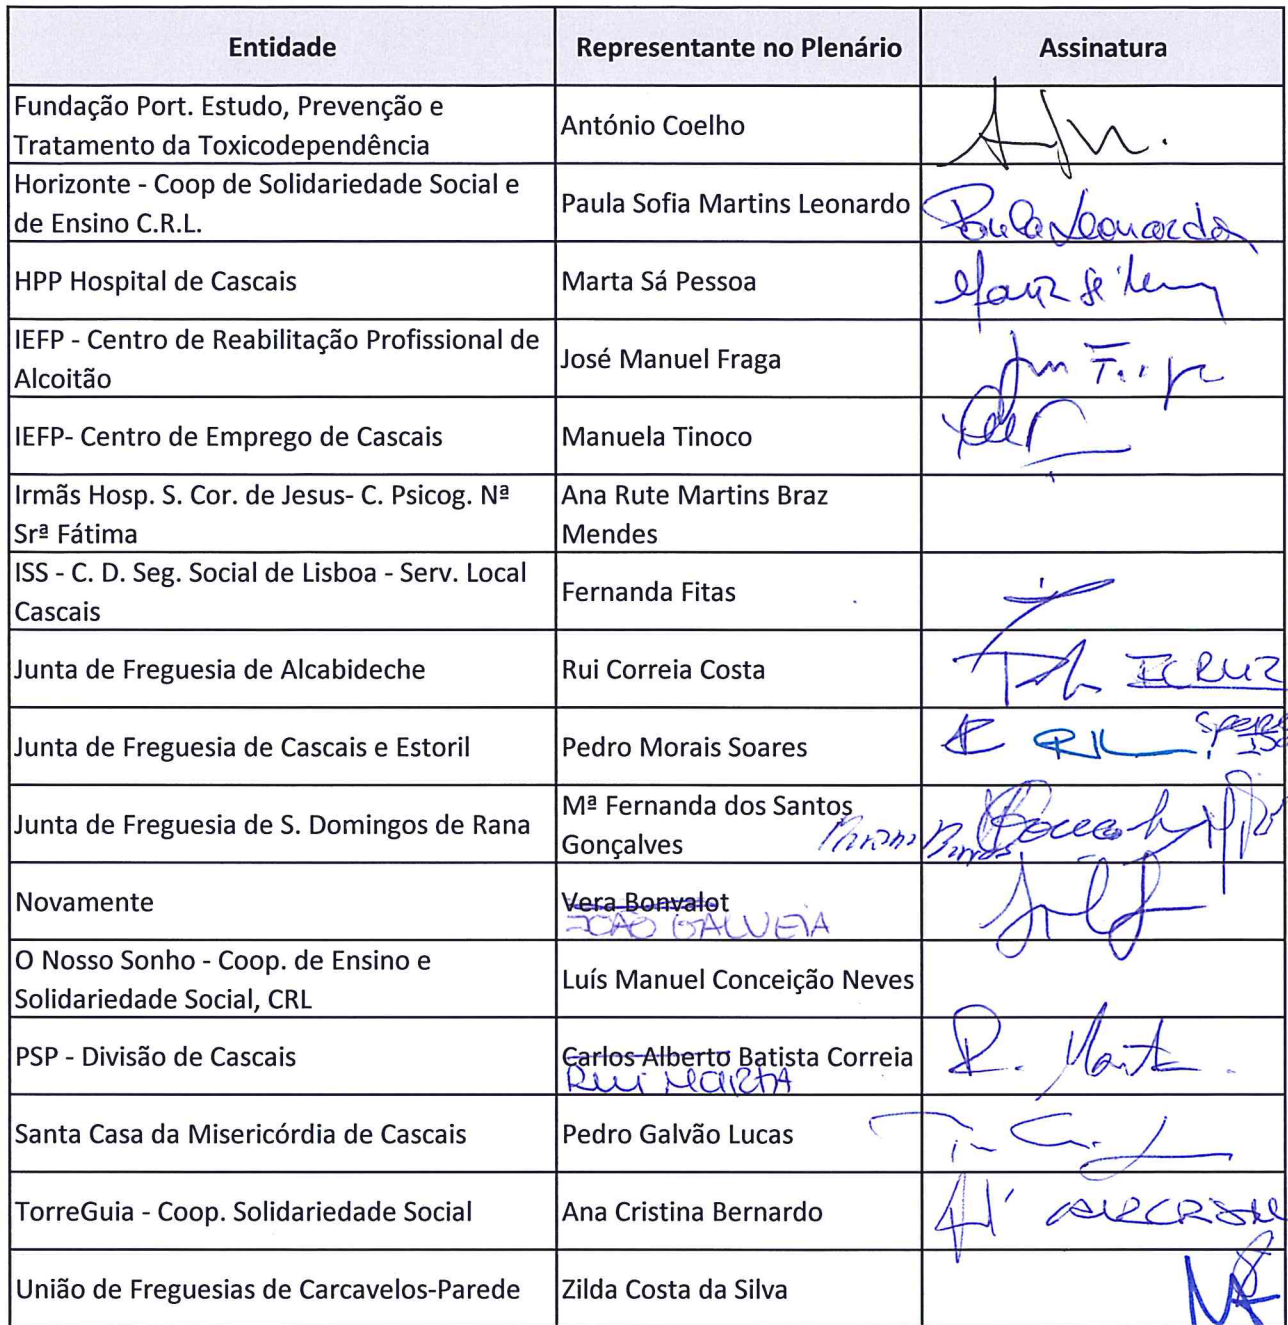 Entidade Representante no Plenário Assinatura
Fundação Port. Estudo, Prevenção e
Tratamento da Toxicodependência
António Coelho
Horizonte - Coop de Solidariedade Social e
de Ensino C.R.L.
Paula Sofia Martins Leonardo
Paula Leonardo
HPP Hospital de Cascais
Marta Sá Pessoa
IEFP - Centro de Reabilitação Profissional de
Alcoitão
José Manuel Fraga
IEFP- Centro de Emprego de Cascais
Manuela Tinoco
Irmãs Hosp. S. Cor. de Jesus- C. Psicog. Nª
Srª Fátima
Ana Rute Martins Braz
Mendes
ISS - C. D. Seg. Social de Lisboa - Serv. Local
Cascais
Fernanda Fitas
Junta de Freguesia de Alcabideche
Rui Correia Costa
Junta de Freguesia de Cascais e Estoril
Pedro Morais Soares
Junta de Freguesia de S. Domingos de Rana
Mª Fernanda dos Santos
Gonçalves
Novamente
Vera Bonvalot
JOÃO GALVEIA
O Nosso Sonho - Coop. de Ensino e
Solidariedade Social, CRL
Luís Manuel Conceição Neves
PSP - Divisão de Cascais
Carlos Alberto Batista Correia
Rui Marta
R. Marta
Santa Casa da Misericórdia de Cascais
Pedro Galvão Lucas
TorreGuia - Coop. Solidariedade Social
Ana Cristina Bernardo
União de Freguesias de Carcavelos-Parede
Zilda Costa da Silva